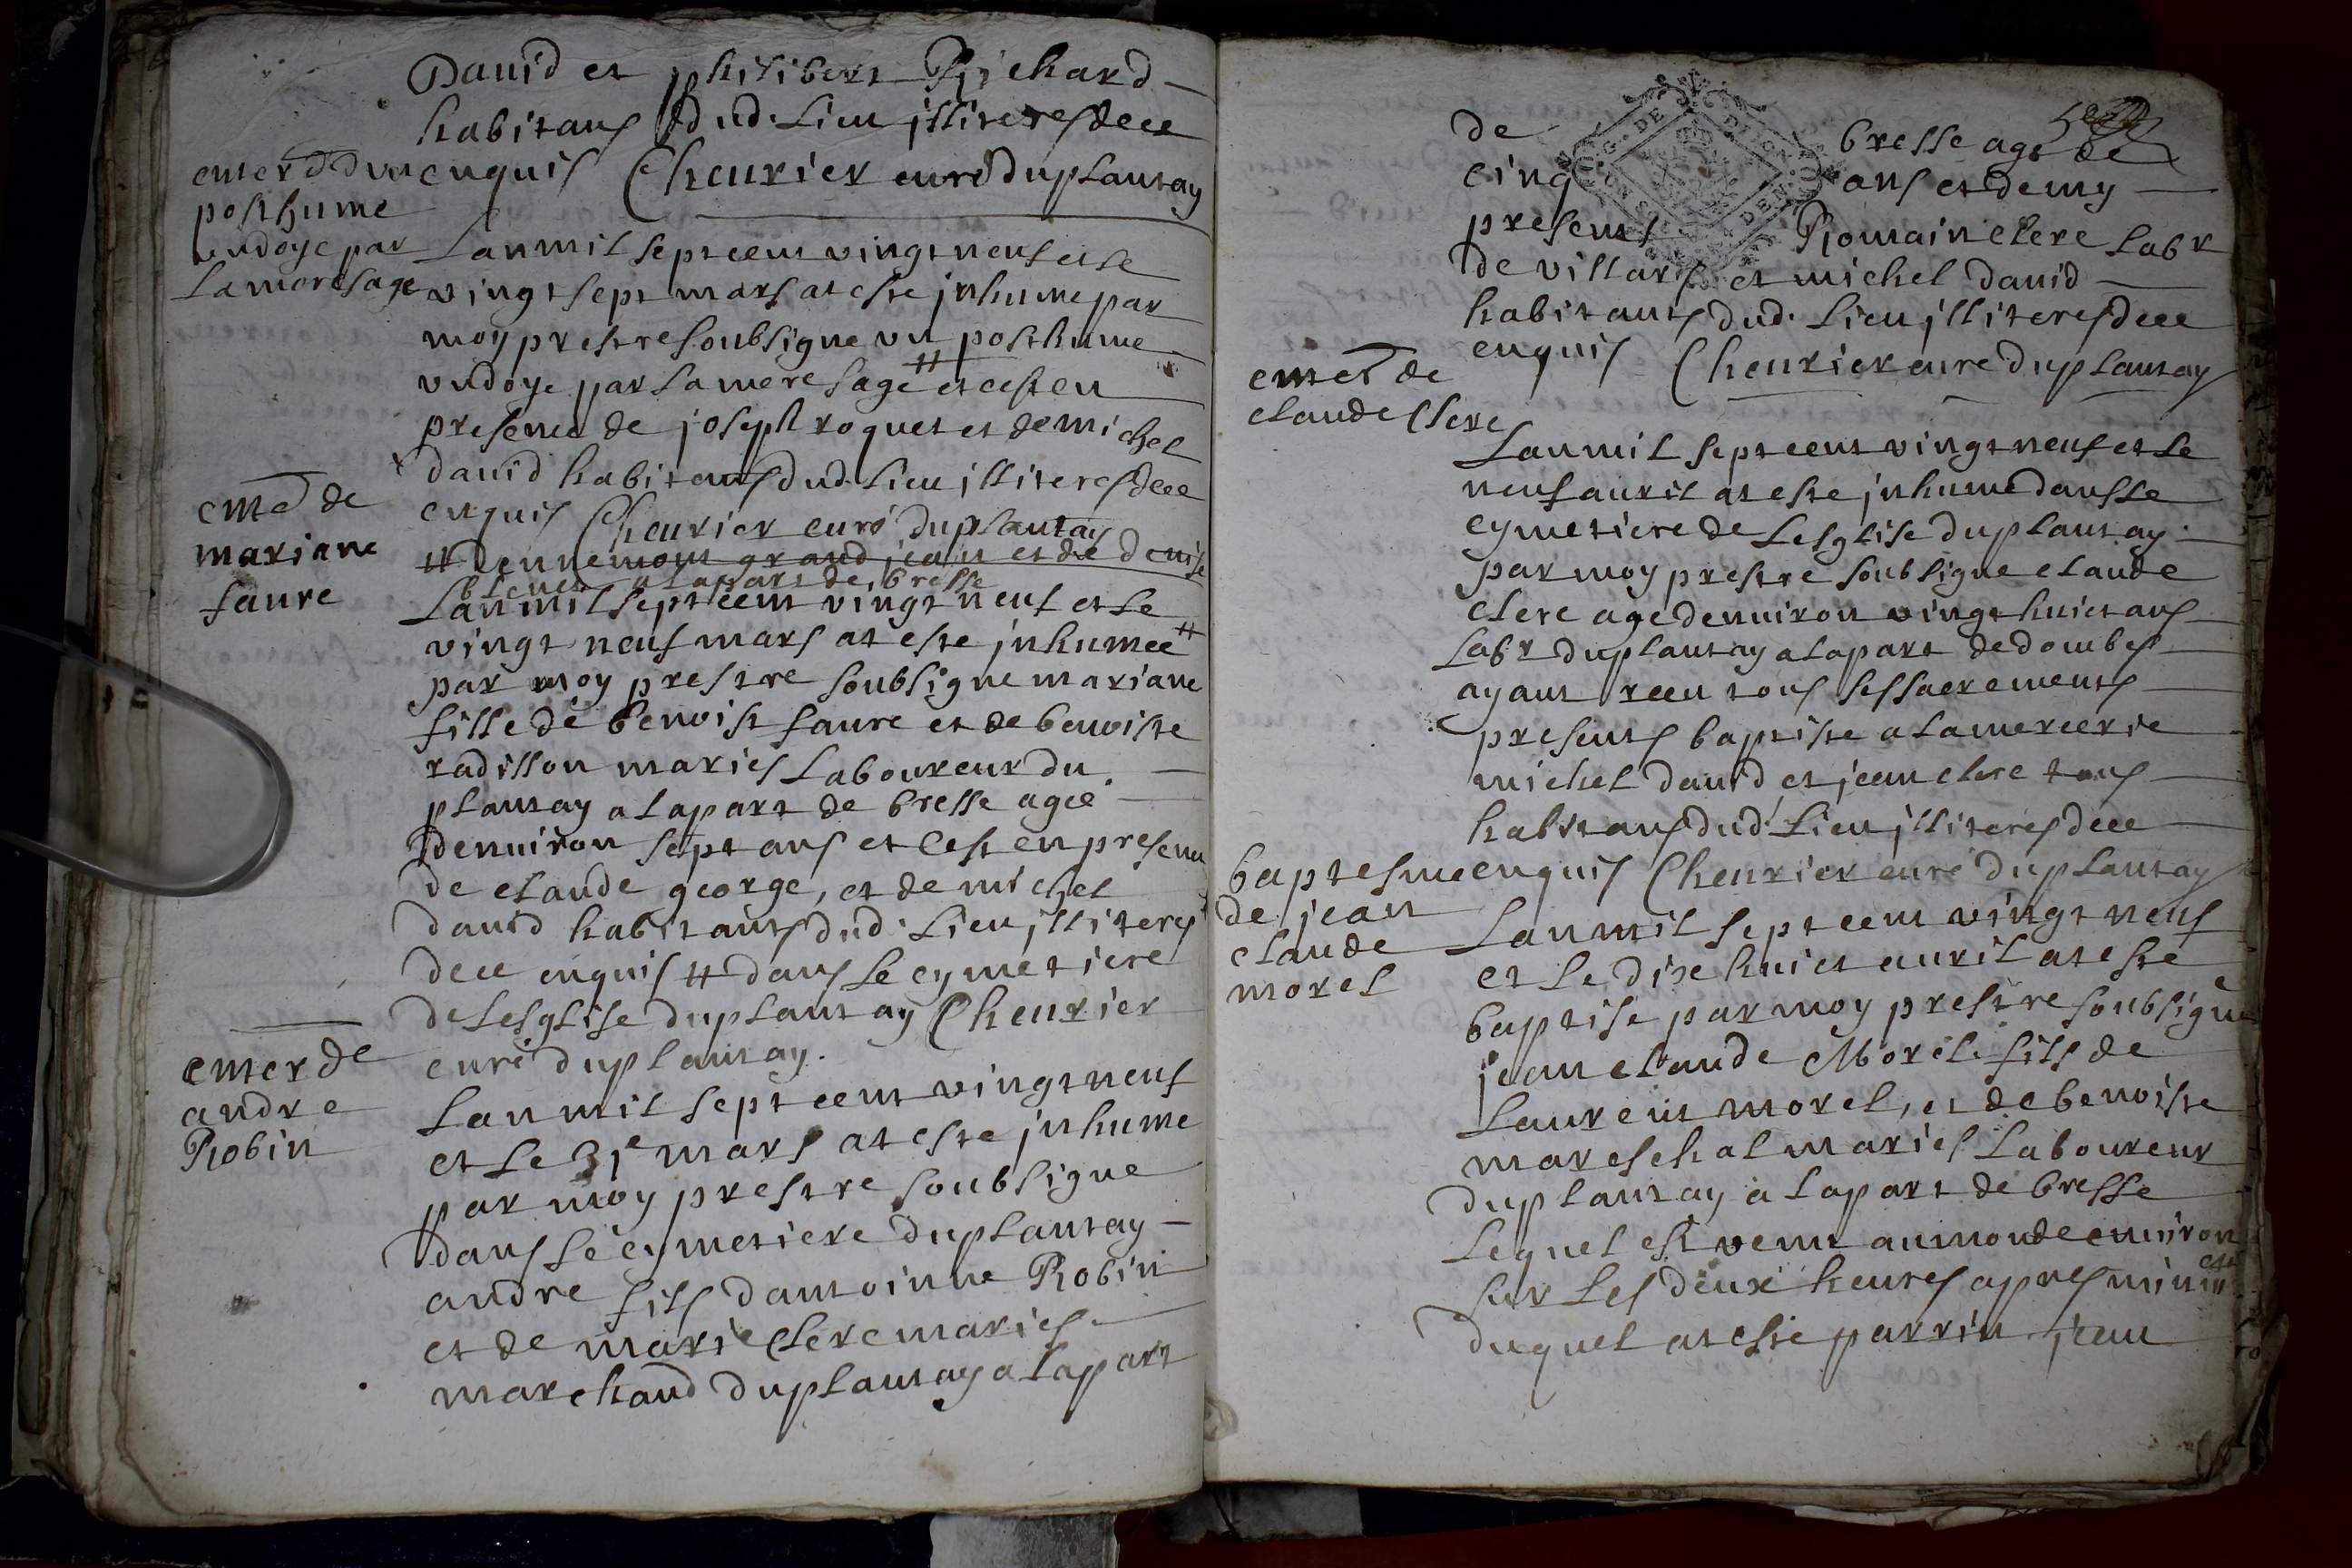 Dauid et philibert Richard
habitans dud. lieu illiteres dece
enquis Cheurier curé du plantay
enterr d vn
posthume
undoye par
la mere sage
Lan mil sept cent vingt neuf et le
vingt sept mars at este inhume par
moy prestre soubsigne vn posthume
undoye par la mere sage # et cest en
presence de joseph roquet et de michel
dauid habitans dud. lieu illiteres dece
enquis Cheurier curé du plantay
# dennemont grand jean et de denise
a la part de bresse
ente de
mariane
faure
Lan mil sept cent vingt neuf et le
vingt neuf mars at este inhumee #
par moy prestre soubsigne mariane
fille de benoist faure et de benoiste
radillon maries laboureur du
plantay a la part de bresse agée
denuiron sept ans et cest en presence
de claude george, et de michel
dauid habitans dud. lieu illiteres
dece enquis # dans le cymetiere
de lesglise du plantay Cheurier
curé du plantay.
enter de
andre
Robin
Lan mil sept cent vingt neuf
et le 31e mars at este inhume
par moy prestre soubsigne
dans le cymetiere du plantay
andre fils dantoinne Robin
et de marie Clerc maries
marchand du plantay a la part
de bresse age de
cinq ans et demy
presents Romain clerc labr
de villars et michel dauid
habitants dud. lieu illiteres dece
enquis Cheurier curé du plantay
enter de
claude Clerc
Lan mil sept cent vingt neuf et le
neuf auril at este inhumé dans le
cymetiere de lesglise du plantay
par moy prestre soubsigne claude
clerc age denuiron vingt huict ans
labr du plantay a la part de dombes
ayant receu tous ses sacrements
presents baptiste a la mercerie
michel dauid et jean clerc tous
habitans dud. lieu illiteres dece
enquis Cheurier curé du plantay
baptesme
de jean
claude
morel
Lan mil sept cent vingt neuf
et le dixe huict auril at este
baptise par moy prestre soubsigné
jean claude Morel fils de
laurent morel, et de benoiste
mareschal maries laboureur
du plantay a la part de bresse
lequel est venu au monde enuiron
sur les deux heures apres minuit
duquel at este parrin jean